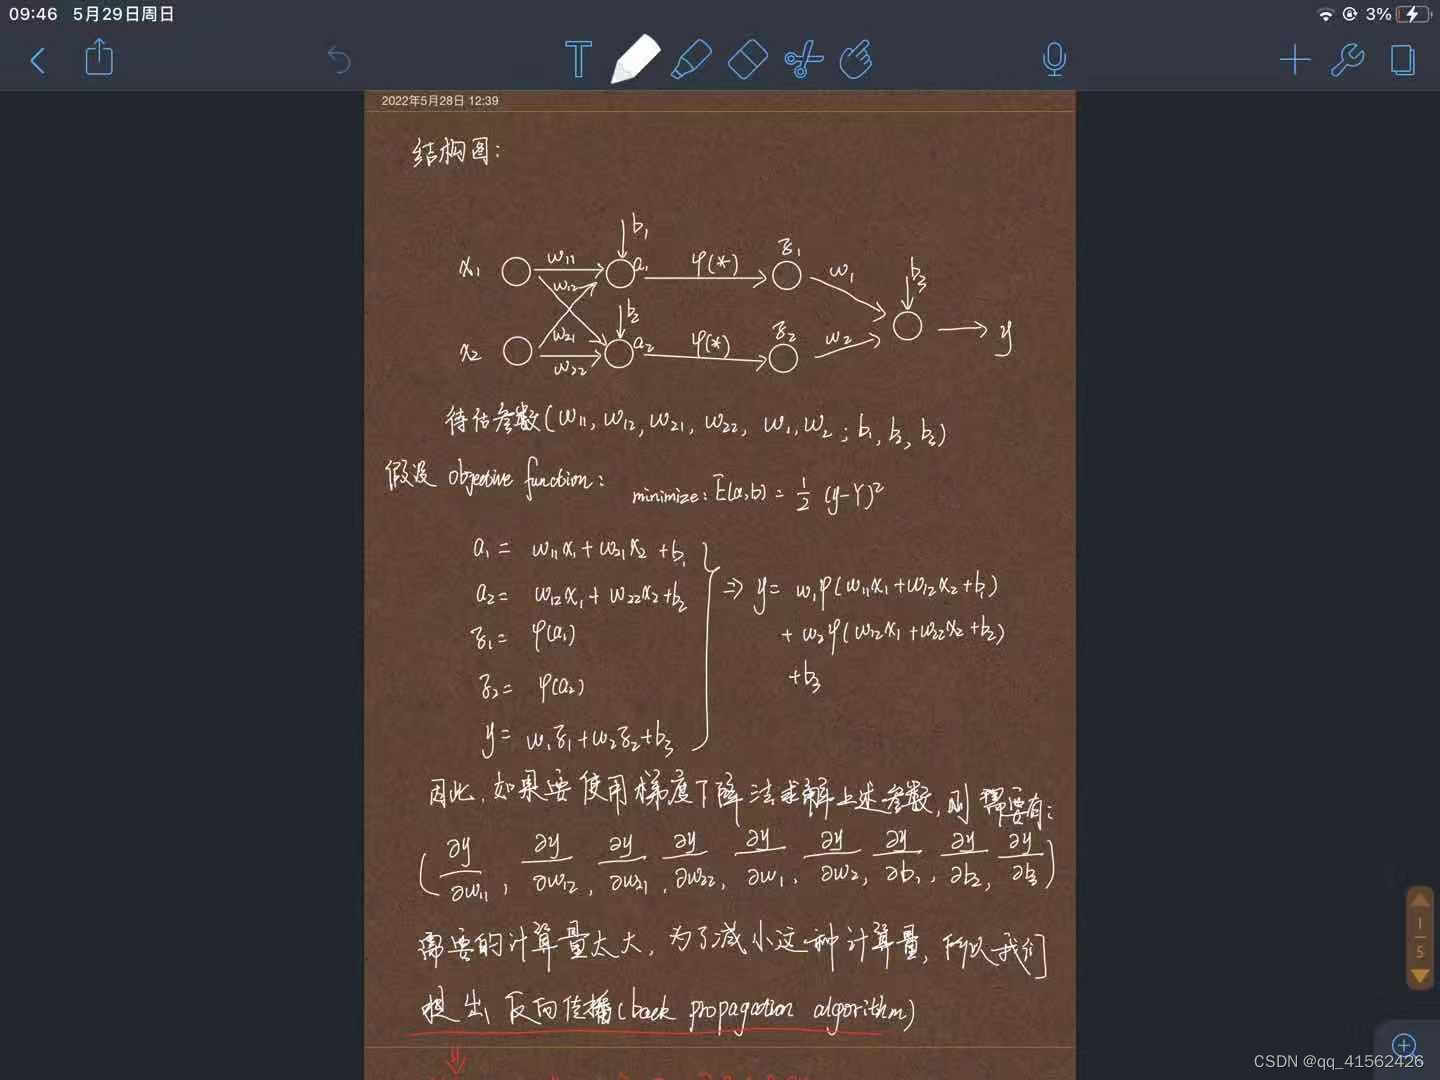 09:46 5月29日周日
3%
T
2022年5月28日 12:39
结构图:
b₁
x₁ w₁₁ a₁ φ(*) z₁ w₁ b₃
w₁₂
b₂
x₂ w₂₁ a₂ φ(*) z₂ w₂ y
w₂₂
待估参数(w₁₁, w₁₂, w₂₁, w₂₂, w₁, w₂; b₁, b₂, b₃)
假设 objective function: minimize: E(a,b) = 1/2 (y-Y)²
a₁ = w₁₁x₁ + w₂₁x₂ + b₁
a₂ = w₁₂x₁ + w₂₂x₂ + b₂
z₁ = φ(a₁)
z₂ = φ(a₂)
y = w₁z₁ + w₂z₂ + b₃
⇒ y = w₁φ(w₁₁x₁ + w₁₂x₂ + b₁)
+ w₂φ(w₁₂x₁ + w₂₂x₂ + b₂)
+ b₃
因此,如果要使用梯度下降法求解上述参数,则需要有:
(∂y/∂w₁₁, ∂y/∂w₁₂, ∂y/∂w₂₁, ∂y/∂w₂₂, ∂y/∂w₁, ∂y/∂w₂, ∂y/∂b₁, ∂y/∂b₂, ∂y/∂b₃)
需要的计算量太大,为了减小这种计算量,所以我们
提出反向传播(back propagation algorithm)
1
5
CSDN @qq_41562426